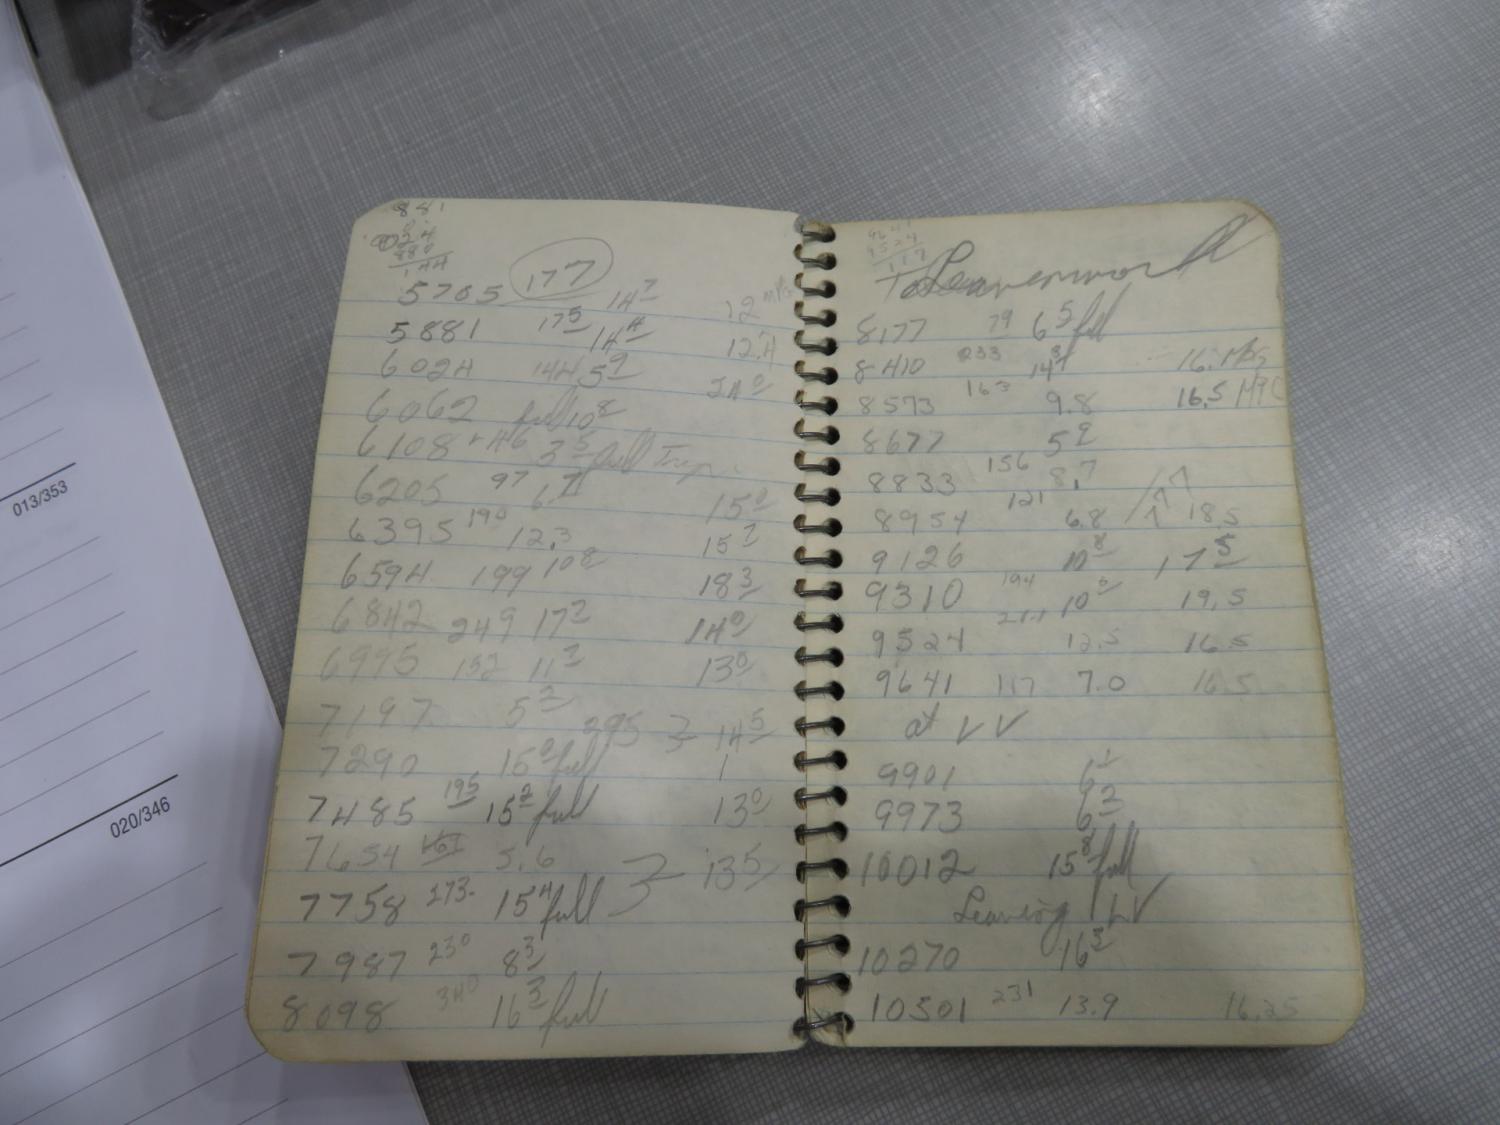 013/353
020/346
881
144
5705 177 14 7 12 mpg
5881 175 14 4 12.4
6024 144 5 9
6062 full 10 8
6108 46 3 5 full Trip
6205 97 6 15 0
6395 190 12.3 15 7
6594 199 10 8 18 3
6842 249 17 2 14 0
6995 152 11 7 13 0
7197 5 2 295 14 5
7290 15 0 full
7485 195 15 2 full 13 0
7654 5.6 13 5
7758 273 15 4 full
7987 230 8 3
8098 340 16 3 full
4641
9524
117
To Leavenworth
8177 79 6 5 full
8410 233 14 16. MPG
8573 163 9.8 16.5 MPG
8677 5 9
8833 156 8.7
8954 121 6.8 18.5
9126 10 8 17 5
9310 194 10 19.5
9524 12.5 16.5
9641 117 7.0 16.5
at LV
9901 6 1
9973 6 3
10012 15 8 full
Leaving LV
10270 16 3
10501 231 13.9 16.25